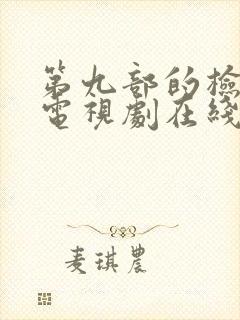 第九部的檢
電視劇在綫
麦琪農